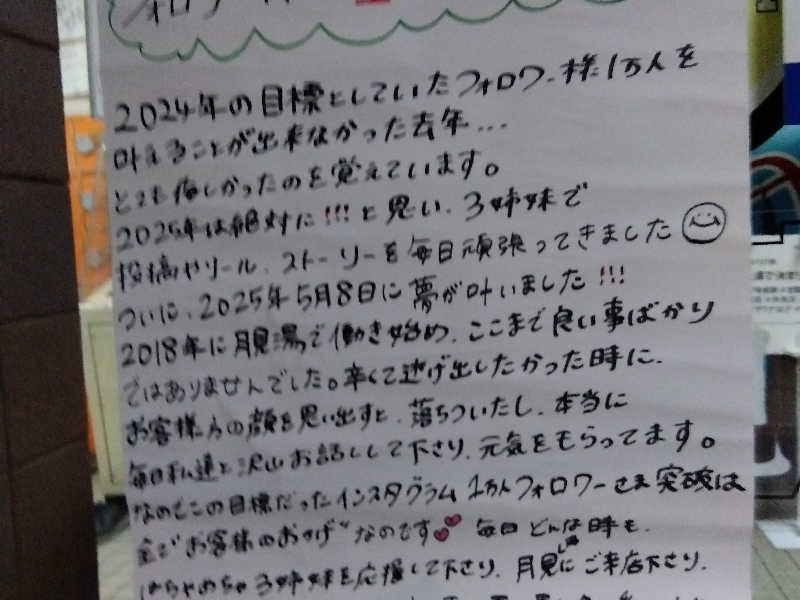 フォロワー
2024年の目標としていたフォロワー様1万人を
叶えることが出来なかった去年...
とても悔しかったのを覚えています。
2025年は絶対に!!!と思い、3姉妹で
投稿やリール、ストーリーを毎日頑張ってきました
ついに、2025年5月8日に夢が叶いました!!!
2018年に月見湯で働き始め、ここまで良い事ばかり
ではありませんでした。辛くて逃げ出したかった時に、
お客様方の顔を思い出すと、落ちついたし、本当に
毎日私達と沢山お話しして下さり、元気をもらってます。
なのでこの目標だったインスタグラム1万人フォロワーさま突破は
全て"お客様のおかげ"なのです💕 毎日どんな時も、
はちゃめちゃ3姉妹を応援して下さり、月見しまにご来店下さり、